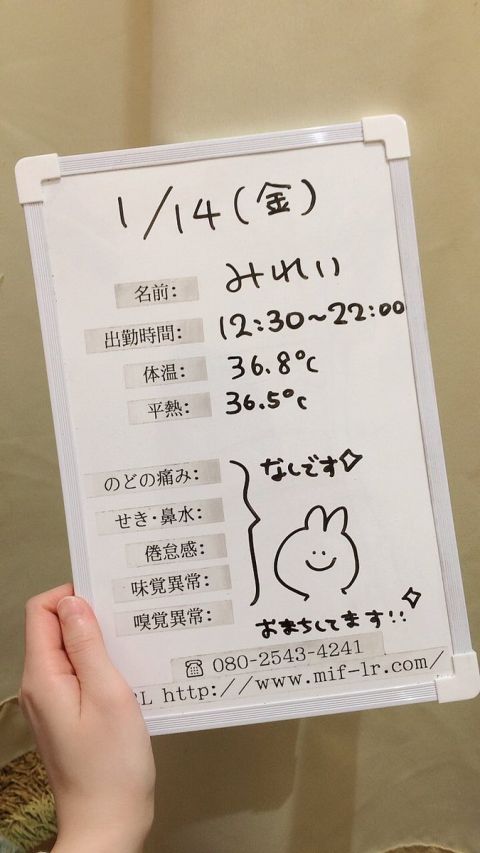 1/14(金)
名前: みれい
出勤時間: 12:30~22:00
体温: 36.8℃
平熱: 36.5℃
のどの痛み: なしです
せき・鼻水:
倦怠感:
味覚異常:
嗅覚異常:
おまちしてます!!
☎ 080-2543-4241
L http://www.mif-lr.com/